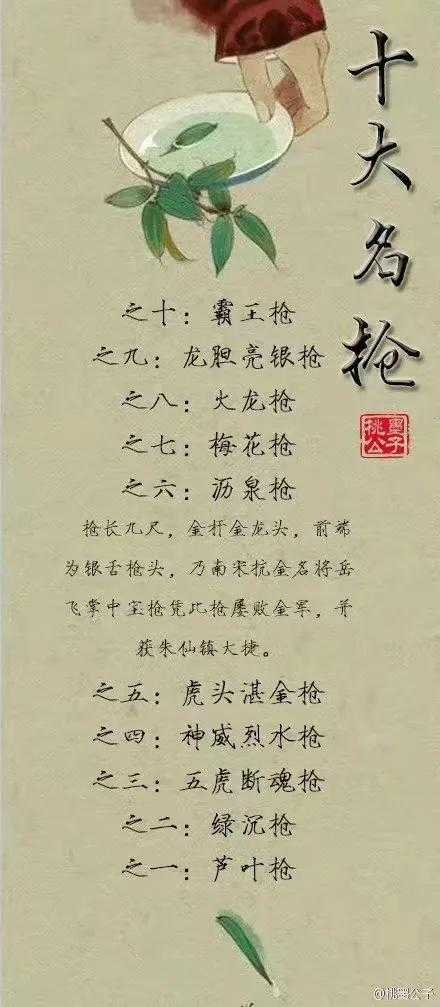 十大名枪
墨子
桃公
之十：霸王枪
之九：龙胆亮银枪
之八：火龙枪
之七：梅花枪
之六：沥泉枪
枪长九尺，金杆金龙头，前端
为银舌枪头，乃南宋抗金名将岳
飞掌中宝枪凭此枪屡败金军，并
获朱仙镇大捷。
之五：虎头湛金枪
之四：神威烈水枪
之三：五虎断魂枪
之二：绿沉枪
之一：芦叶枪
@桃墨公子